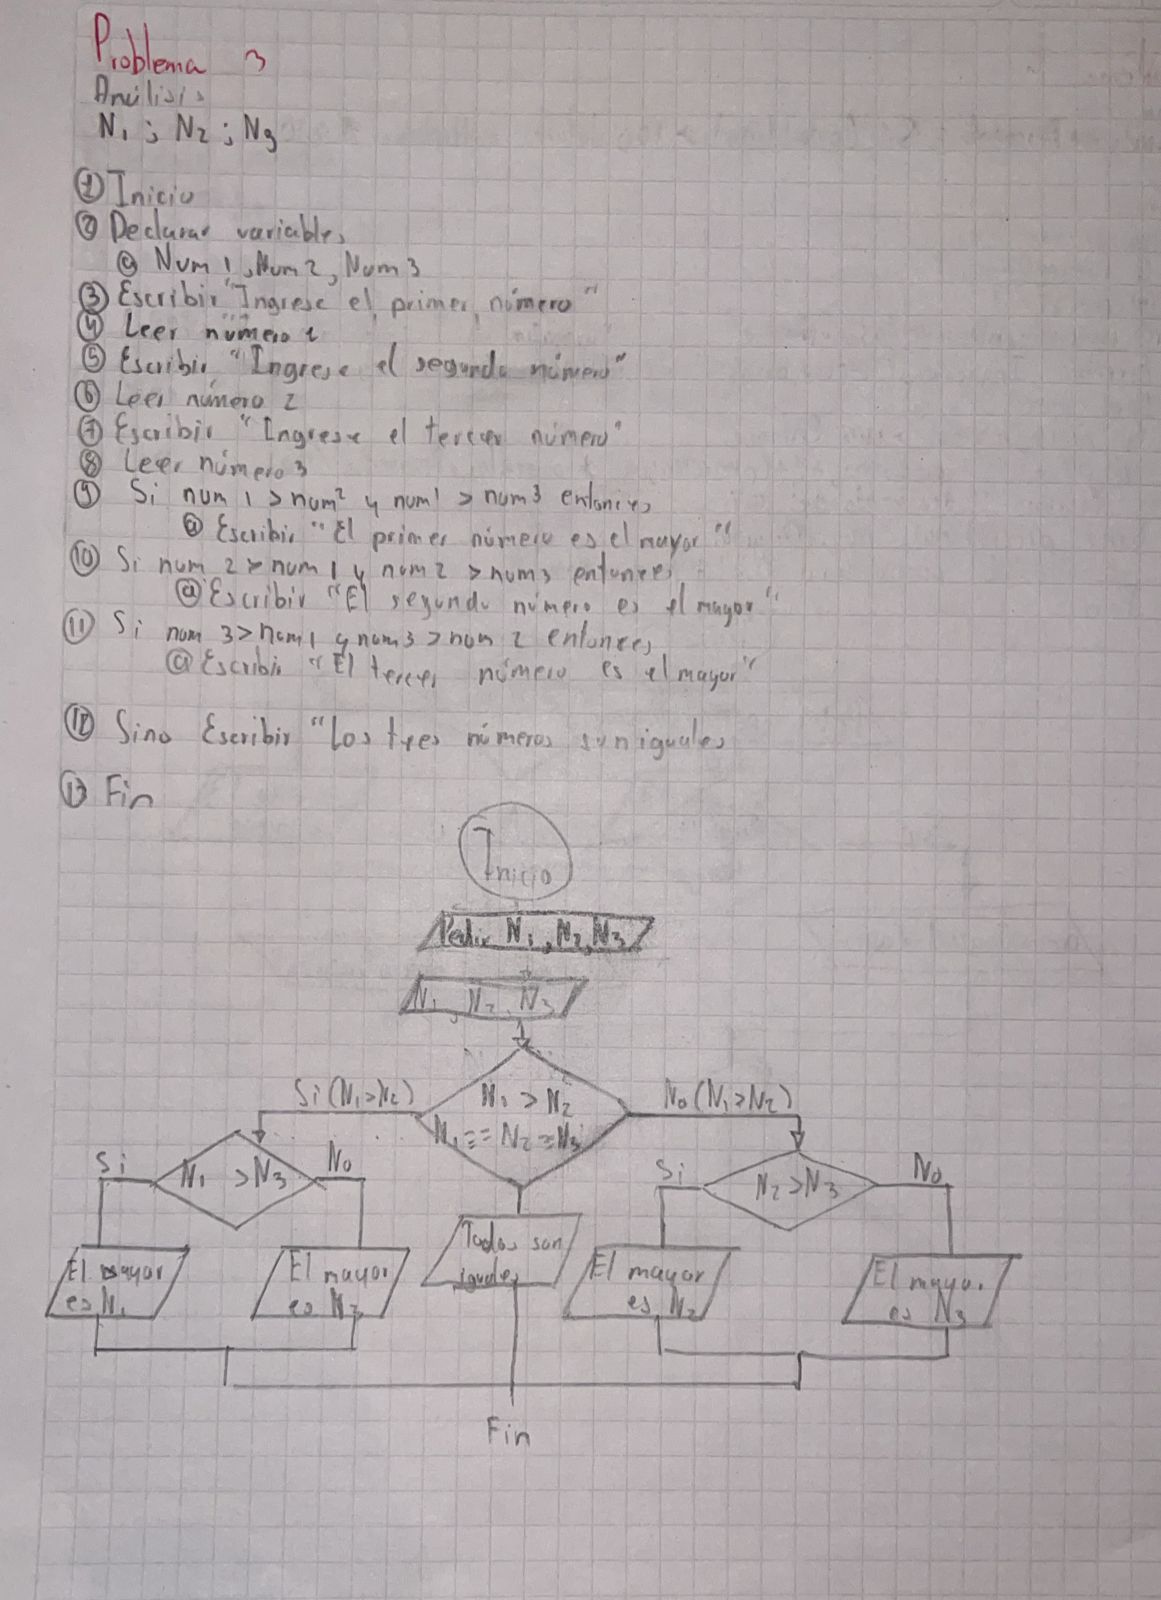 Problema 3
Análisis
N1 ; N2 ; N3
① Inicio
② Declarar variables
ⓐ Num 1, Num 2, Num 3
③ Escribir "Ingrese el primer número"
④ Leer número 1
⑤ Escribir "Ingrese el segundo número"
⑥ Leer número 2
⑦ Escribir "Ingrese el tercer número"
⑧ Leer número 3
⑨ Si num 1 > num 2 y num 1 > num 3 entonces
ⓐ Escribir "El primer número es el mayor"
⑩ Si num 2 > num 1 y num 2 > num 3 entonces
ⓐ Escribir "El segundo número es el mayor"
⑪ Si num 3 > num 1 y num 3 > num 2 entonces
ⓐ Escribir "El tercer número es el mayor"
⑫ Sino Escribir "Los tres números son iguales
⑬ Fin
Inicio
Pedir N1, N2, N3
N1, N2, N3
Si (N1 > N2)
N1 > N2
N1 == N2 = N3
No (N1 > N2)
Si
N1 > N3
No
Si
N2 > N3
No
El mayor
es N1
El mayor
es
Todos son
iguales
El mayor
es N2
El mayor
es N3
Fin